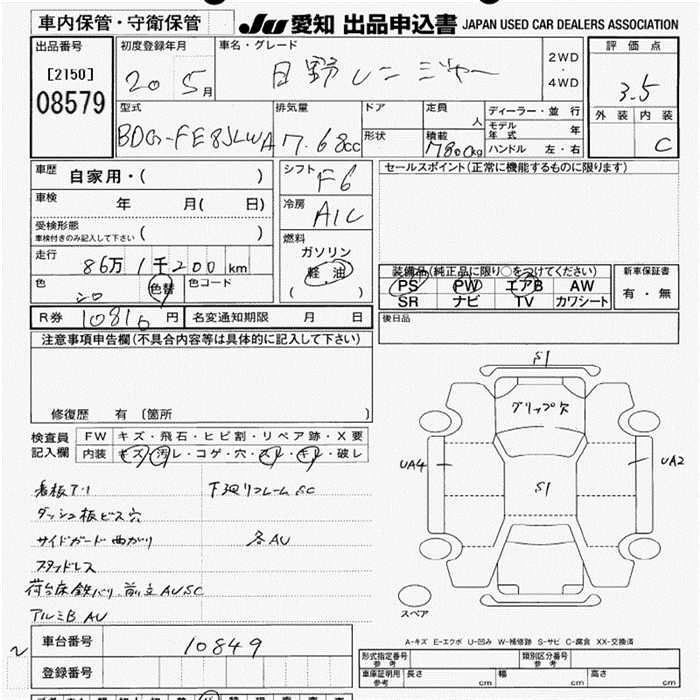 車内保管・守衛保管
JU 愛知 出品申込書 JAPAN USED CAR DEALERS ASSOCIATION
出品番号
[2150]
08579
初度登録年月
20 5月
車名・グレード
日野レンジャー
2WD
・
4WD
評価点
3.5
外装 内装
C
型式
BDG-FE8JLWA
排気量
7.68cc
ドア
形状
定員
人
積載
7800kg
ディーラー・並行
モデル年式 年
ハンドル 左・右
車歴
自家用・( )
車検
年 月( 日)
受検形態
車検付きのみ記入して下さい ( )
走行
86万1千200km
色
シロ
色替
色コード
R券 10816円
名変通知期限 月 日
シフト
F6
冷房
A/C
燃料
ガソリン
軽油
( )
セールスポイント(正常に機能するものに限ります)
装備品(純正品に限り○をつけてください)
PS PW エアB AW
SR ナビ TV カワシート
新車保証書
有・無
後日品
注意事項申告欄(不具合内容等は具体的に記入して下さい)
修復歴 有 [箇所 ]
検査員
記入欄
FW キズ・飛石・ヒビ割・リペア跡・X要
内装 キズ・汚レ・コゲ・穴・スレ・キレ・破レ
看板アリ
下廻りフレームSC
ダッシュ板ビス穴
サイドガード曲がり
各AU
スタッドレス
荷台床鉄バリ 前立AUSC
アルミB AU
S1
グリップ欠
UA4
S1
UA2
スペア
A-キズ E-エクボ U-凹み W-補修跡 S-サビ C-腐食 XX-交換済
車台番号 10849
登録番号
形式指定番号
参考
類別区分番号
参考
車庫証明用
参考
長さ cm 幅 cm 高さ cm